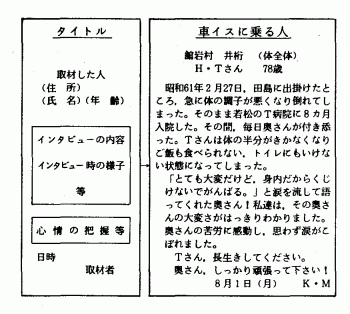 タイトル
取材した人
(住 所)
(氏 名)(年 齢)
インタビューの内容
インタビュー時の様子
等
心 情 の 把 握 等
日時
取材者
車イスに乗る人
舘岩村 井桁 (体全体)
H・Tさん 78歳
昭和61年2月27日,田島に出掛けたと
ころ,急に体の調子が悪くなり倒れてし
まった。そのまま若松のT病院に8ヵ月
入院した。その間,毎日奥さんが付き添
った。Tさんは体の半分がきかなくなり
ご飯も食べられない,トイレにもいけな
い状態になってしまった。
「とても大変だけど,身内だからくじ
けないでがんばる。」と涙を流して語
ってくれた奥さん!私達は,その奥さ
んの大変さがはっきりわかりました。
奥さんの苦労に感動し,思わず涙がこ
ぼれました。
Tさん,長生きしてください。
奥さん,しっかり頑張って下さい!
8月1日(月) K・M